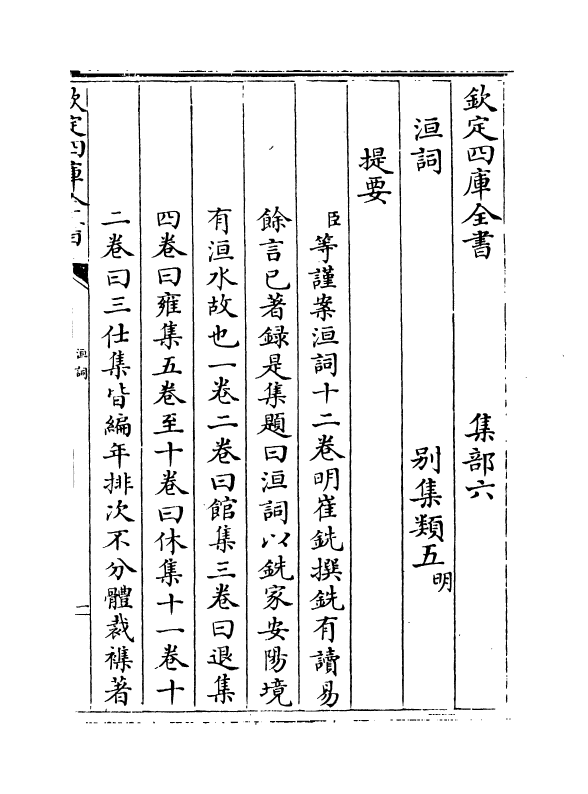 欽定四庫全書　集部六
洹詞　別集類五明
提要
臣等謹案洹詞十二卷明崔銑撰銑有讀易
餘言已著録是集題曰洹詞以銑家安陽境
有洹水故也一卷二卷曰館集三卷曰退集
四卷曰雍集五卷至十卷曰休集十一卷十
二卷曰三仕集皆編年排次不分體裁襍著
欽定四庫全書
洹詞